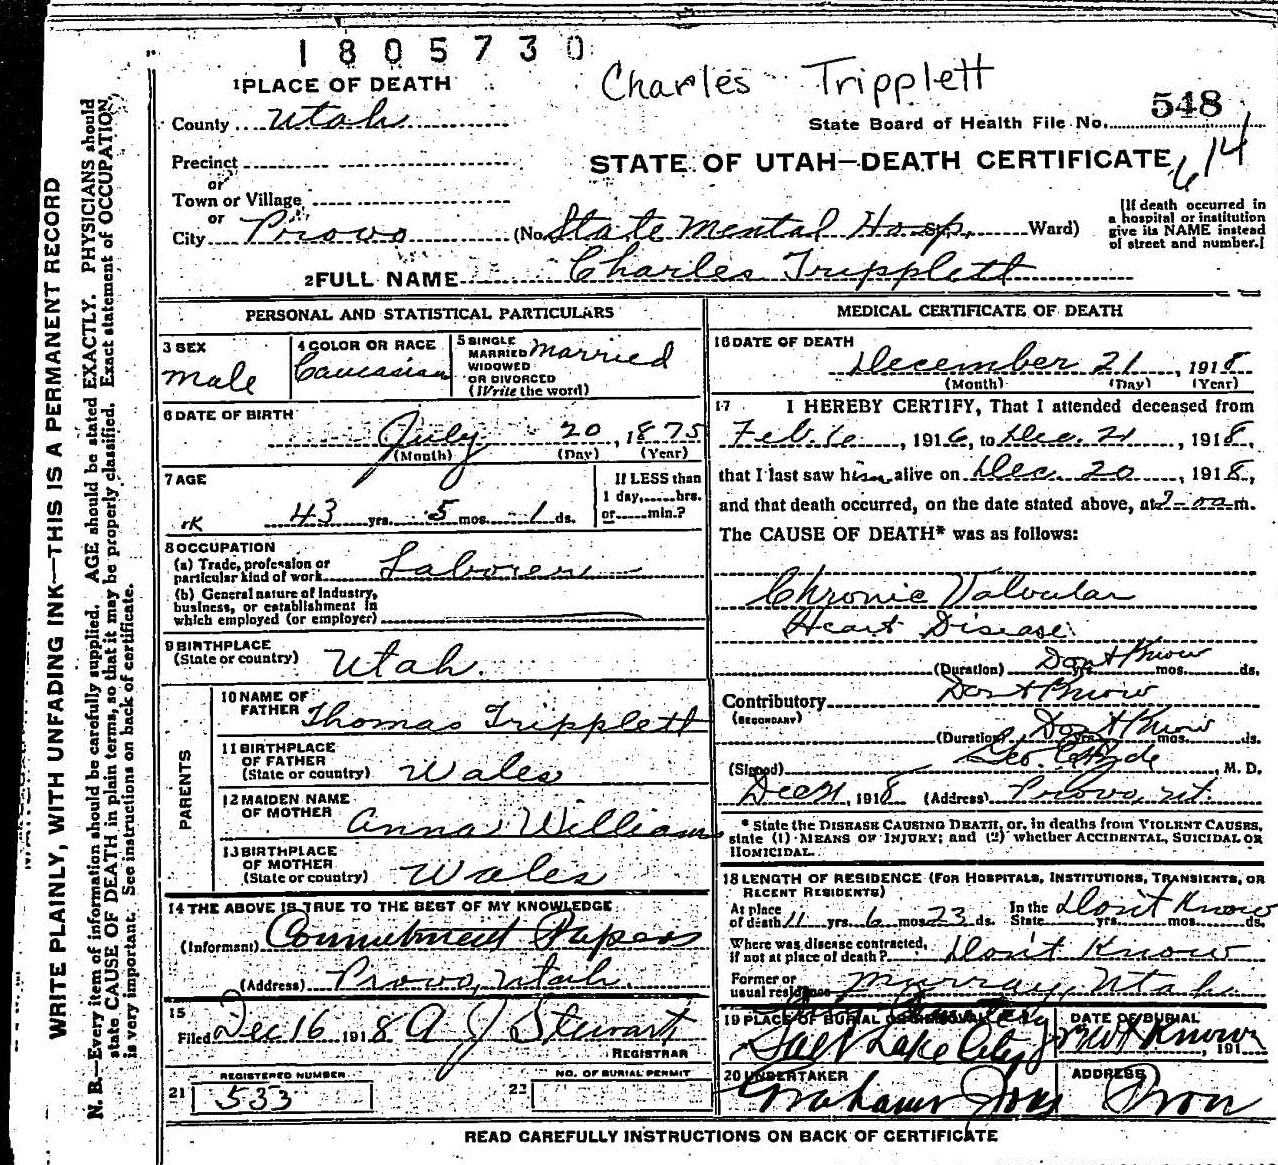 1805730
Charles Tripplett
1 PLACE OF DEATH
County Utah
State Board of Health File No. 548
Precinct
STATE OF UTAH—DEATH CERTIFICATE
614
or
Town or Village
or
City Provo
(No. State Mental Hosp. St. Ward)
[If death occurred in
a hospital or institution
give its NAME instead
of street and number.]
2 FULL NAME Charles Tripplett
PERSONAL AND STATISTICAL PARTICULARS
3 SEX
Male
4 COLOR OR RACE
Caucasian
5 SINGLE
MARRIED
WIDOWED
OR DIVORCED
(Write the word)
Married
6 DATE OF BIRTH
July 20, 1875
(Month) (Day) (Year)
7 AGE
OK 43 yrs. 5 mos. 1 ds.
If LESS than
1 day,......hrs.
or......min.?
8 OCCUPATION
(a) Trade, profession or
particular kind of work Laborer
(b) General nature of industry,
business, or establishment in
which employed (or employer)
9 BIRTHPLACE
(State or country) Utah.
PARENTS
10 NAME OF
FATHER Thomas Tripplett
11 BIRTHPLACE
OF FATHER
(State or country) Wales
12 MAIDEN NAME
OF MOTHER
Anna Williams
13 BIRTHPLACE
OF MOTHER
(State or country) Wales
14 THE ABOVE IS TRUE TO THE BEST OF MY KNOWLEDGE
(Informant) Commitment Papers
(Address) Provo, Utah.
15
Filed Dec 16 1918 A J Stewart
REGISTRAR
21 REGISTERED NUMBER
533
22 NO. OF BURIAL PERMIT
MEDICAL CERTIFICATE OF DEATH
16 DATE OF DEATH
December 21, 1918
(Month) (Day) (Year)
17 I HEREBY CERTIFY, That I attended deceased from
Feb. , 1916, to Dec. 21, 1918,
that I last saw him alive on Dec. 20, 1918,
and that death occurred, on the date stated above, at m.
The CAUSE OF DEATH* was as follows:
Chronic Valvular
Heart Disease
(Duration) Don't Know yrs. mos. ds.
Contributory Don't Know
(SECONDARY)
(Duration) Don't Know yrs. mos. ds.
(Signed) Geo. E. Hyde, M. D.
Dec 21, 1918 (Address) Provo, Ut.
* State the DISEASE CAUSING DEATH, or, in deaths from VIOLENT CAUSES,
state (1) MEANS OF INJURY; and (2) whether ACCIDENTAL, SUICIDAL OR
HOMICIDAL.
18 LENGTH OF RESIDENCE (FOR HOSPITALS, INSTITUTIONS, TRANSIENTS, OR
RECENT RESIDENTS)
At place
of death 11 yrs. 6 mos. 23 ds. In the
State Don't Know yrs. mos. ds.
Where was disease contracted,
if not at place of death? Don't Know
Former or
usual residence Murray, Utah.
19 PLACE OF BURIAL OR REMOVAL
Salt Lake City
DATE OF BURIAL
Don't Know, 191
20 UNDERTAKER
Graham
ADDRESS
Provo
READ CAREFULLY INSTRUCTIONS ON BACK OF CERTIFICATE
WRITE PLAINLY, WITH UNFADING INK—THIS IS A PERMANENT RECORD
N. B.—Every item of information should be carefully supplied. AGE should be stated EXACTLY. PHYSICIANS should
state CAUSE OF DEATH in plain terms, so that it may be properly classified. Exact statement of OCCUPATION
is very important. See instructions on back of certificate.